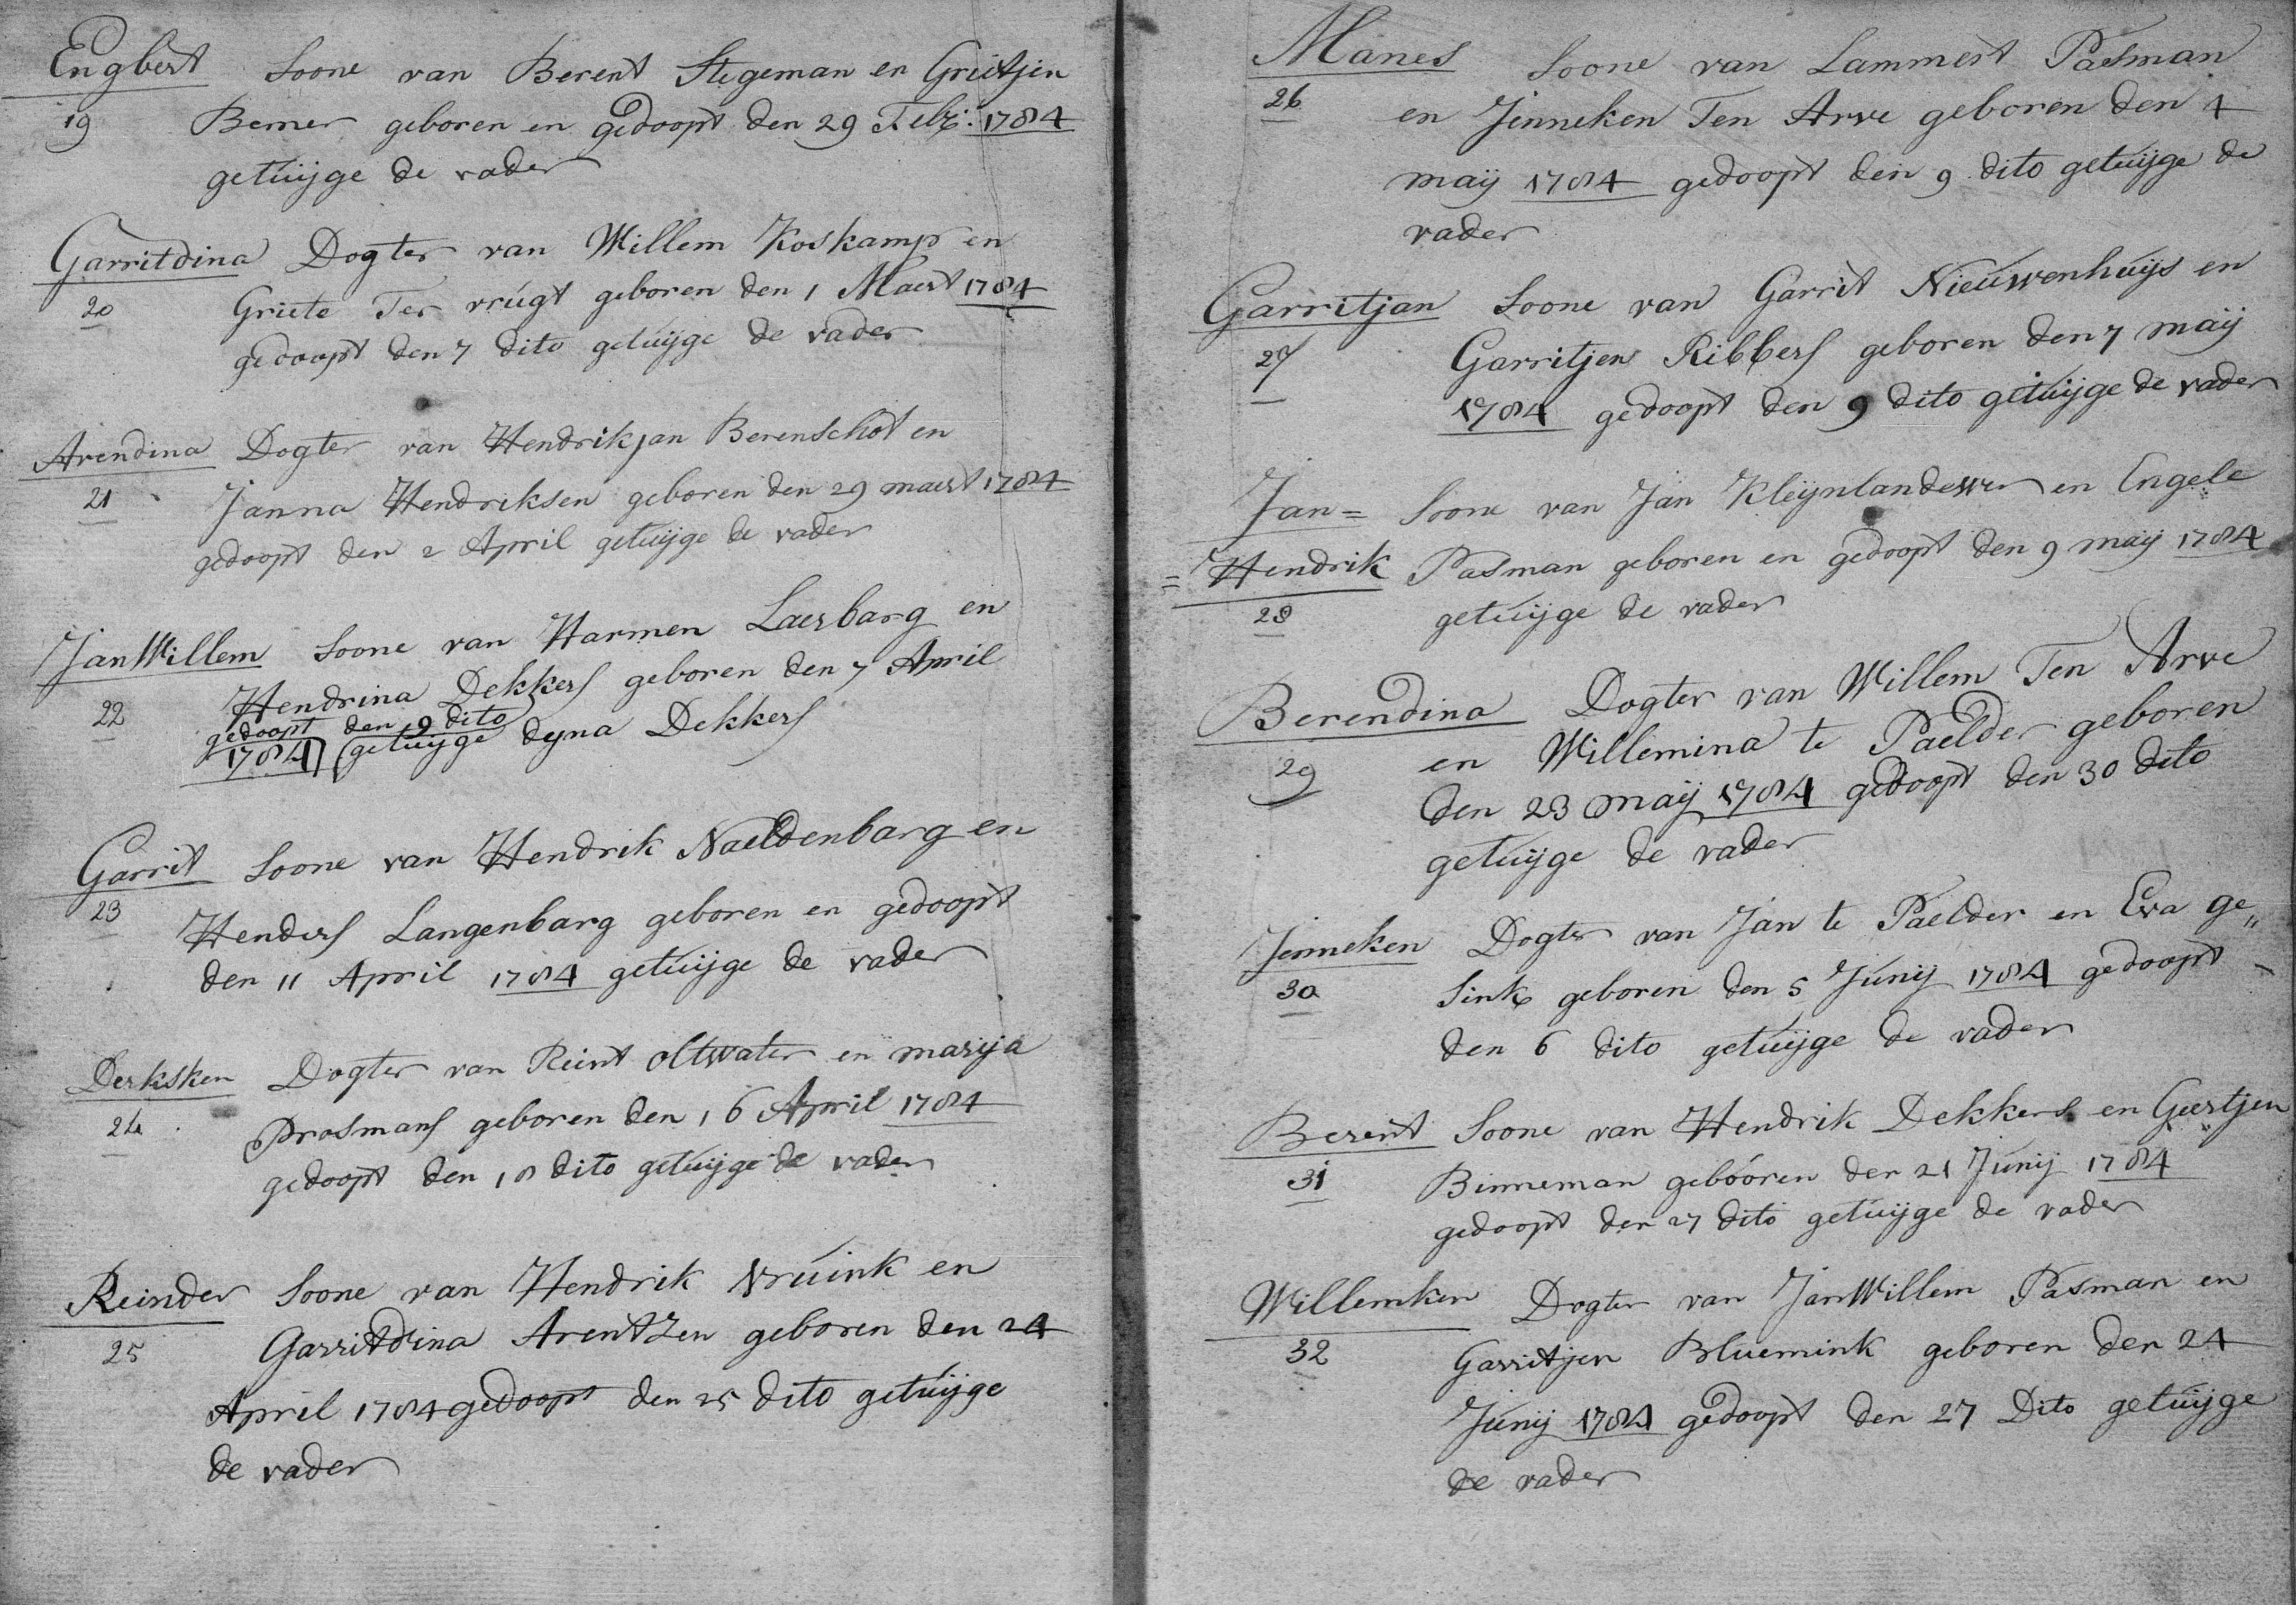 Engbert Soone van Berent Stegeman en Grietjen
19 Bemer geboren en gedoopt den 29 Febr: 1784
getuijge de vader
Garritdina Dogter van Willem Koskamp en
20 Griete Ter vrugt geboren den 1 Maert 1784
gedoopt den 7 dito getuijge de vader
Arendina Dogter van Hendrikjan Berenschot en
21 Janna Hendriksen geboren den 29 maert 1784
gedoopt den 2 April getuijge de vader
JanWillem Soone van Harmen Laerbarg en
22 Hendrina Dekkers geboren den 7 April
gedoopt den 9 dito
1784 getuijge dyna Dekkers
Garrit Soone van Hendrik Naeldenbarg en
23 Henders Langenbarg geboren en gedoopt
den 11 April 1784 getuijge de vader
Derksken Dogter van Reint oltwater en marija
24 Prosmans geboren den 16 April 1784
gedoopt den 18 dito getuijge de vader
Reinder Soone van Hendrik Vruink en
25 Garritdina Arentzen geboren den 24
April 1784 gedoopt den 25 dito getuijge
de vader
Manes Soone van Lammert Pasman
26 en Jenneken Ten Arve geboren den 4
maij 1784 gedoopt den 9 dito getuijge de
vader
Garritjan Soone van Garrit Nieuwenhuijs en
27 Garritjen Ribbers geboren den 7 maij
1784 gedoopt den 9 dito getuijge de vader
Jan= Soone van Jan Kleijnlandewer en Engele
=Hendrik Pasman geboren en gedoopt den 9 maij 1784
28 getuijge de vader
Berendina Dogter van Willem Ten Arve
29 en Willemina te Paelder geboren
den 23 maij 1784 gedoopt den 30 dito
getuijge de vader
Jenneken Dogter van Jan te Paelder en Eva ge„
30 Sink geboren den 5 Junij 1784 gedoopt
den 6 dito getuijge de vader
Berent Soone van Hendrik Dekkers en Geertjen
31 Binneman gebooren den 21 Junij 1784
gedoopt den 27 dito getuijge de vader
Willemken Dogter van JanWillem Pasman en
32 Garritjen Bluemink geboren den 24
Junij 1784 gedoopt den 27 Dito getuijge
de vader